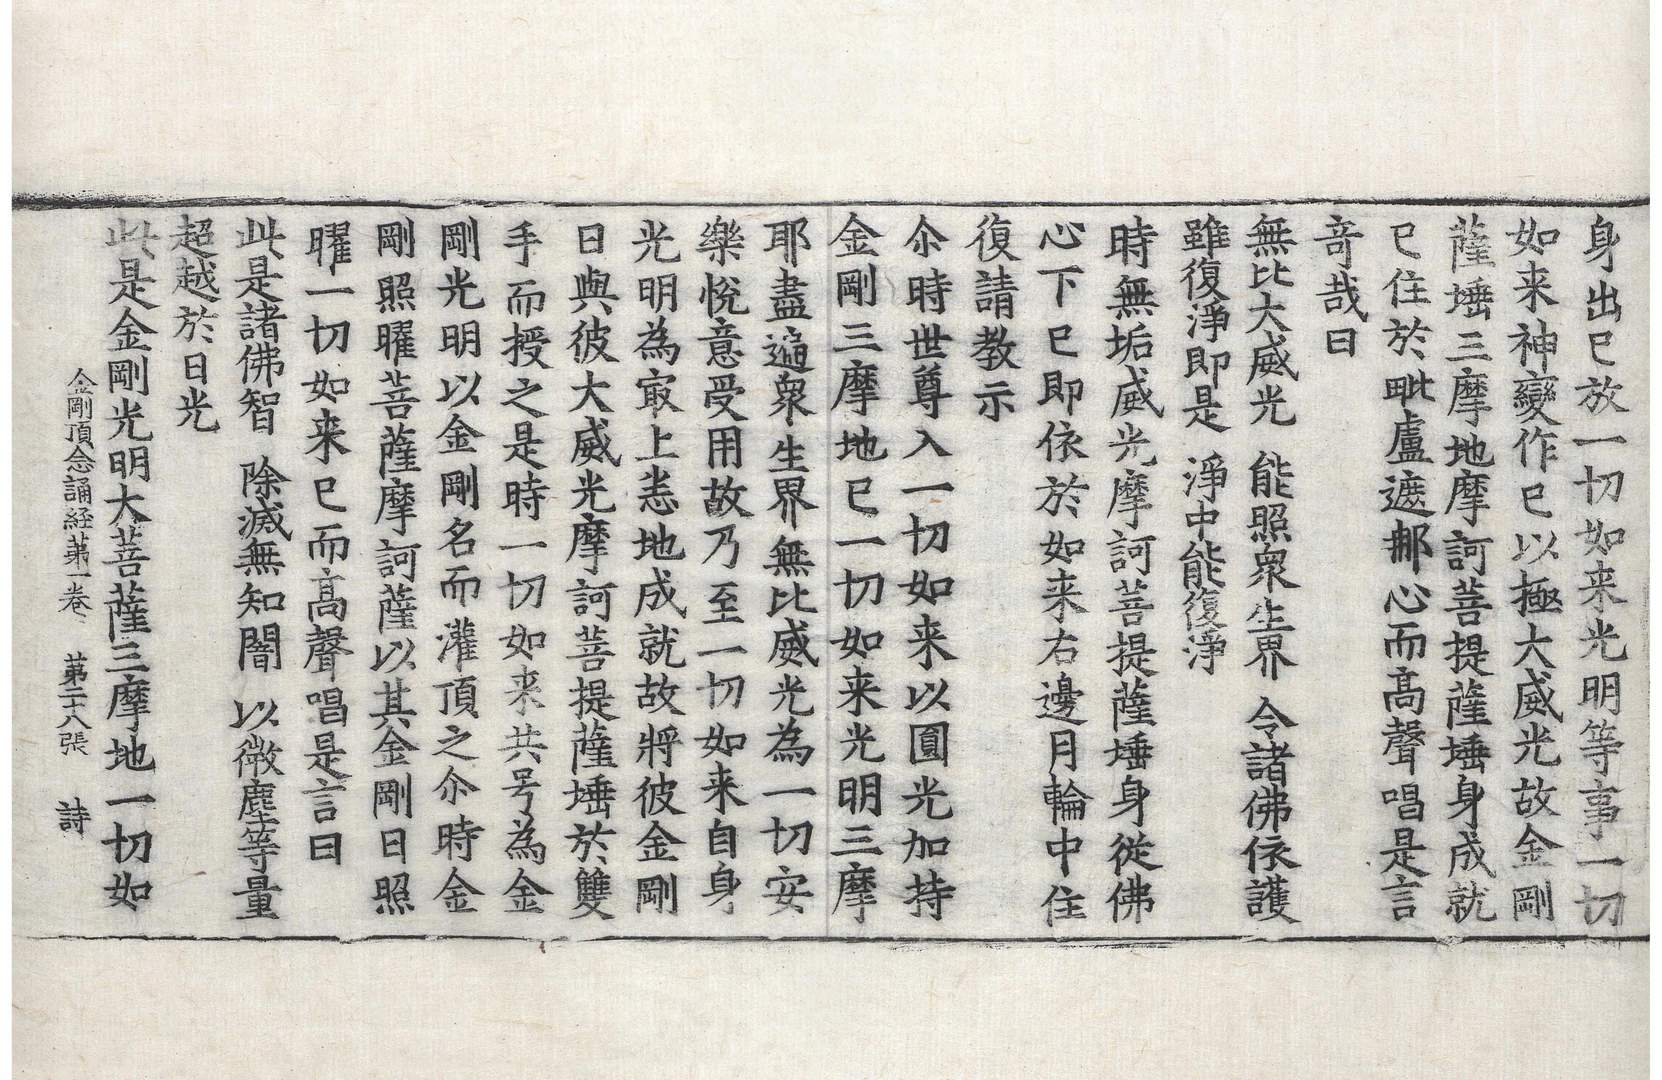 身出已放一切如来光明等事一切
如来神變作已以極大威光故金剛
薩埵三摩地摩訶菩提薩埵身成就
已住於毗盧遮那心而高聲唱是言
竒哉曰
無比大威光 能照衆生界 令諸佛依護
雖復淨即是 淨中能復淨
時無垢威光摩訶菩提薩埵身從佛
心下已即依於如来右邊月輪中住
復請教示
尒時世尊入一切如来以圓光加持
金剛三摩地已一切如来光明三摩
耶盡遍衆生界無比威光為一切安
樂悅意受用故乃至一切如来自身
光明為冣上悉地成就故將彼金剛
日與彼大威光摩訶菩提薩埵於雙
手而授之是時一切如来共号為金
剛光明以金剛名而灌頂之尒時金
剛照曜菩薩摩訶薩以其金剛日照
曜一切如来已而高聲唱是言曰
此是諸佛智 除滅無知闇 以微塵等量
超越於日光
此是金剛光明大菩薩三摩地一切如
金剛頂念誦経苐一卷 苐二十八張 詩